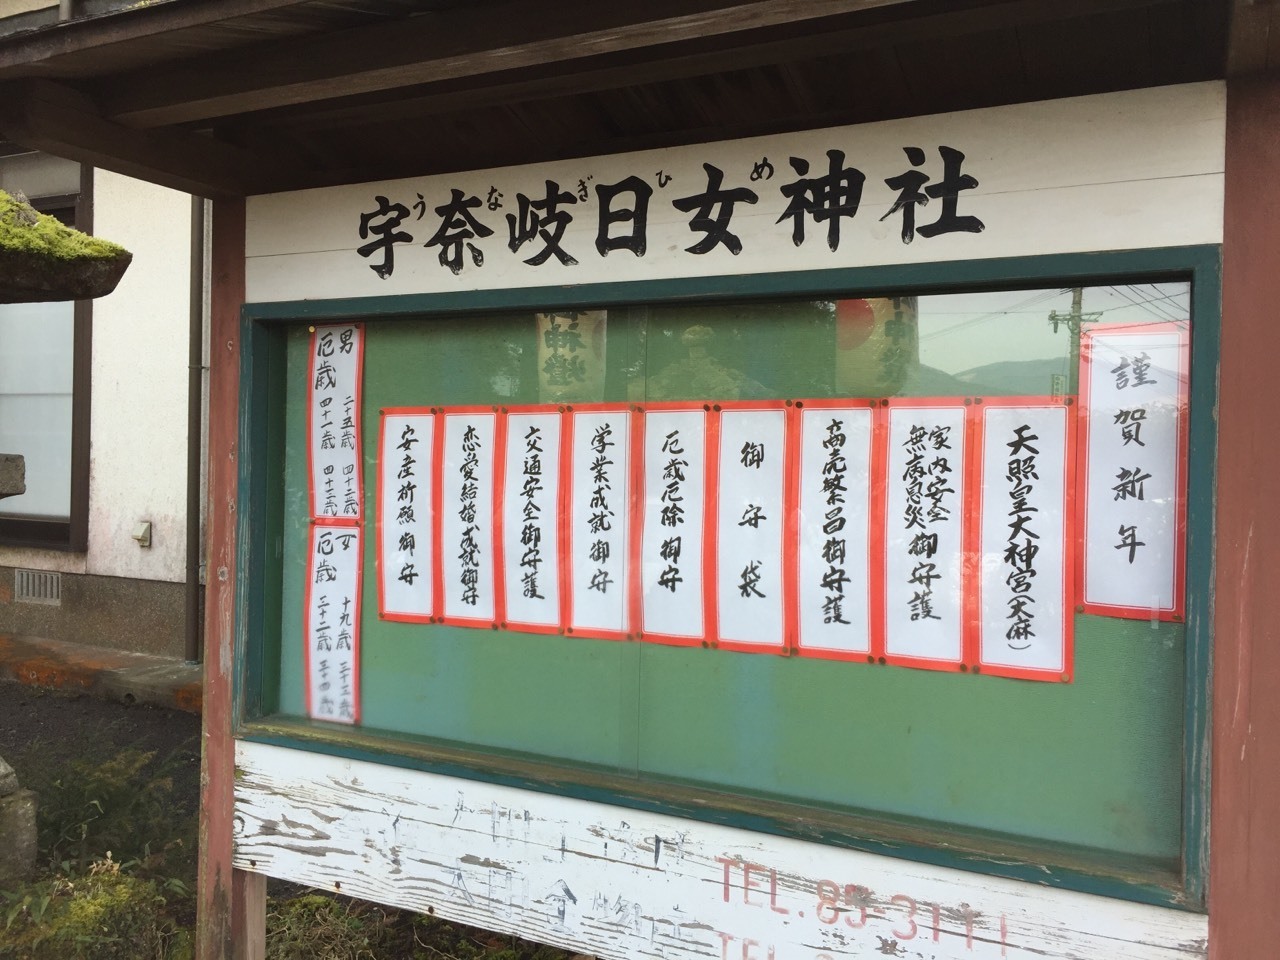 宇奈岐日女神社
うなぎひめ
謹賀新年
天照皇大神宮(大麻)
家内安全
無病息災
御守護
商売繁昌御守護
御守袋
厄歳厄除御守
学業成就御守
交通安全御守護
恋愛結婚成就御守
安産祈願御守
男 二十五歳 四十二歳
厄歳 四十一歳 四十三歳
女 十九歳 三十三歳
厄歳 三十二歳 三十四歳
TEL. 85-3111
TEL.